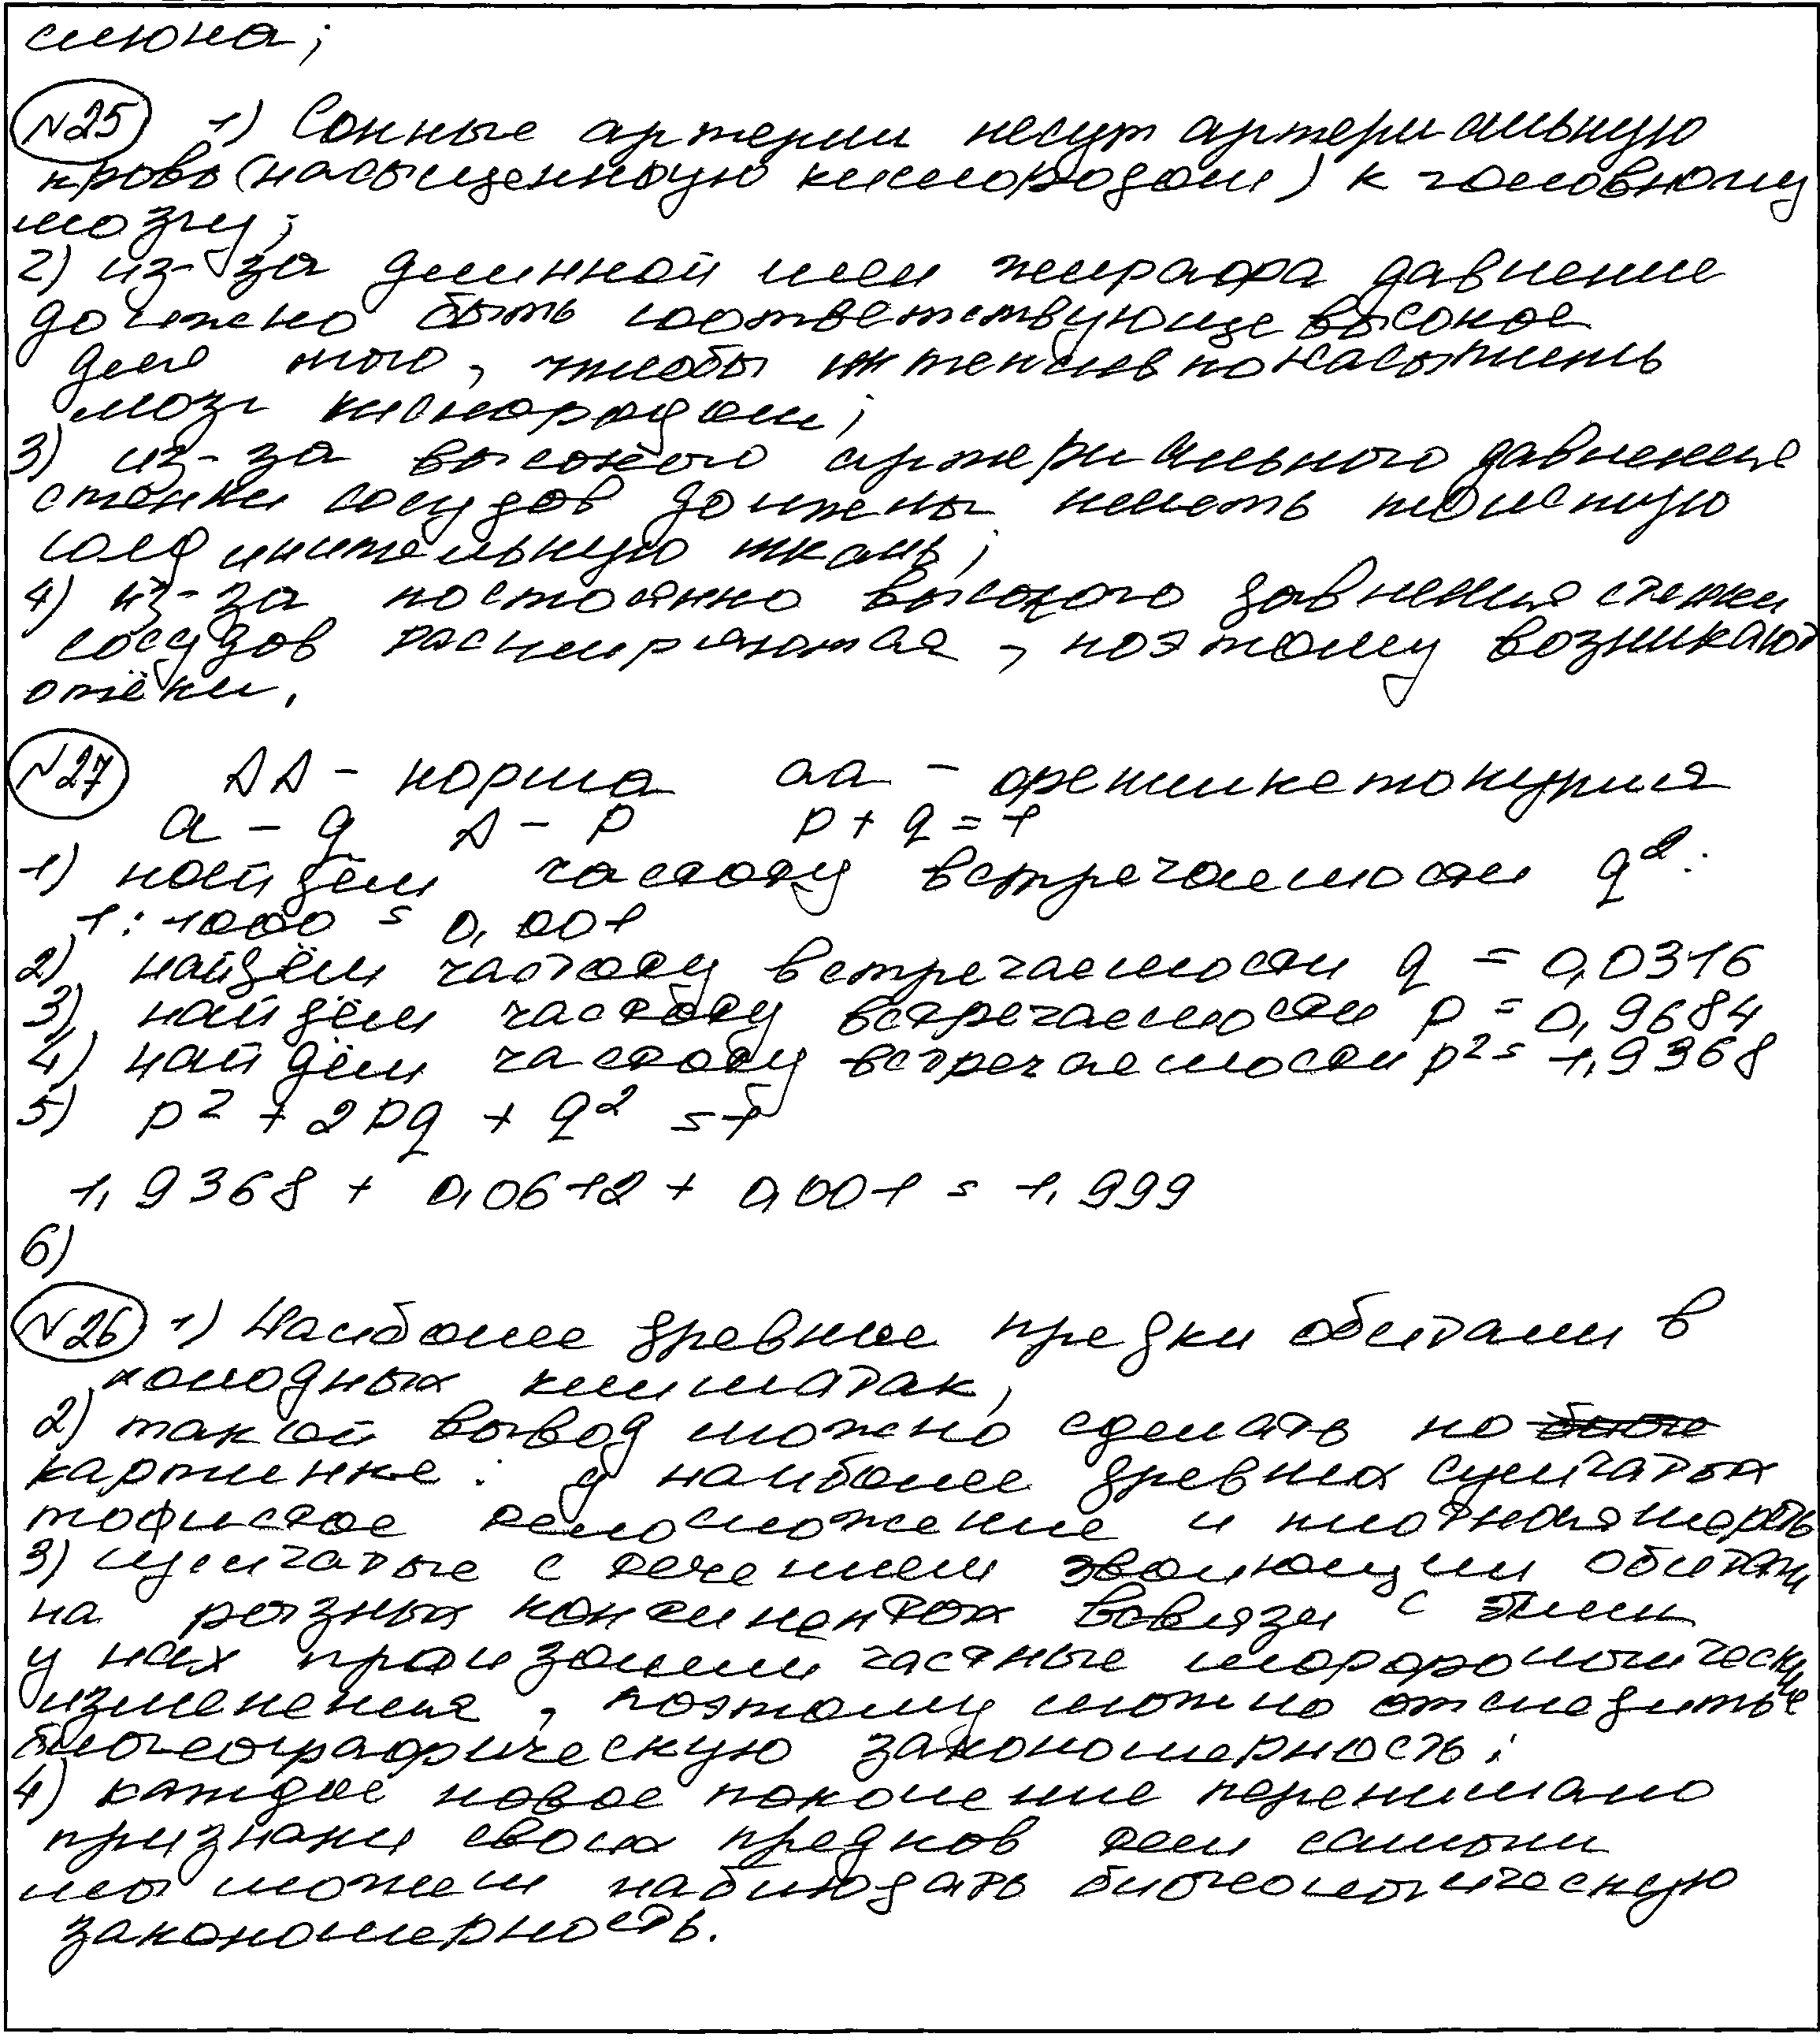 смона;
№25 1) Сонные артерии несут артериальную
кровь (насыщенную кислородом) к головному
мозгу;
2) из-за длинной шеи жирафа давление
должно быть соответствующе высокое
для того, чтобы интенсивно насытить
мозг кислородом;
3) из-за высокого артериального давления
стенки сосудов должны иметь толстую
соединительную ткань;
4) из-за постоянно высокого давления стенки
сосудов расширяются, поэтому возникают
отёки.
№27 АА - норма аа - фенилкетонурия
а - q А - p p + q = 1
1) найдём частоту встречаемости q²:
1 : 1000 = 0,001
2) найдём частоту встречаемости q = 0,0316
3) найдём частоту встречаемости p = 0,9684
4) найдём частоту встречаемости p² = 1,9368
5) p² + 2pq + q² = 1
1,9368 + 0,0612 + 0,001 = 1,999
6)
№26 1) Наиболее древние предки обитали в
холодных климатах;
2) такой вывод можно сделать по
картинке: у наиболее древних сумчатых
телосложение и плотная шерсть
3) сумчатые с течением эволюции обитали
на разных континентах в связи с этим
у них произошли частные морфологические
изменения, поэтому можно отследить
биогеографическую закономерность;
4) каждое новое поколение перенимало
признаки своих предков тем самым
мы можем наблюдать биогеологическую
закономерность.